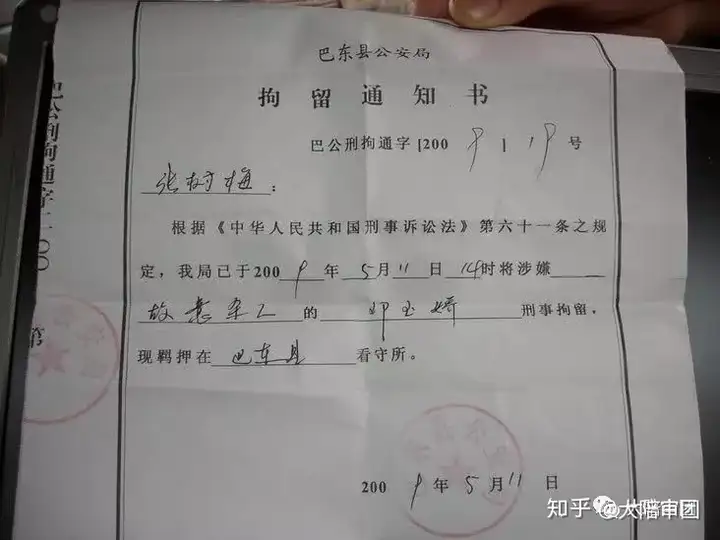 巴东县公安局
拘留通知书
巴公刑拘通字[2009]19号
张树梅：
根据《中华人民共和国刑事诉讼法》第六十一条之规
定，我局已于2009年5月11日14时将涉嫌
故意杀人的邓玉娇刑事拘留，
现羁押在巴东县看守所。
2009年5月11日
巴公刑拘通字二00
第
知乎 @大陪审团